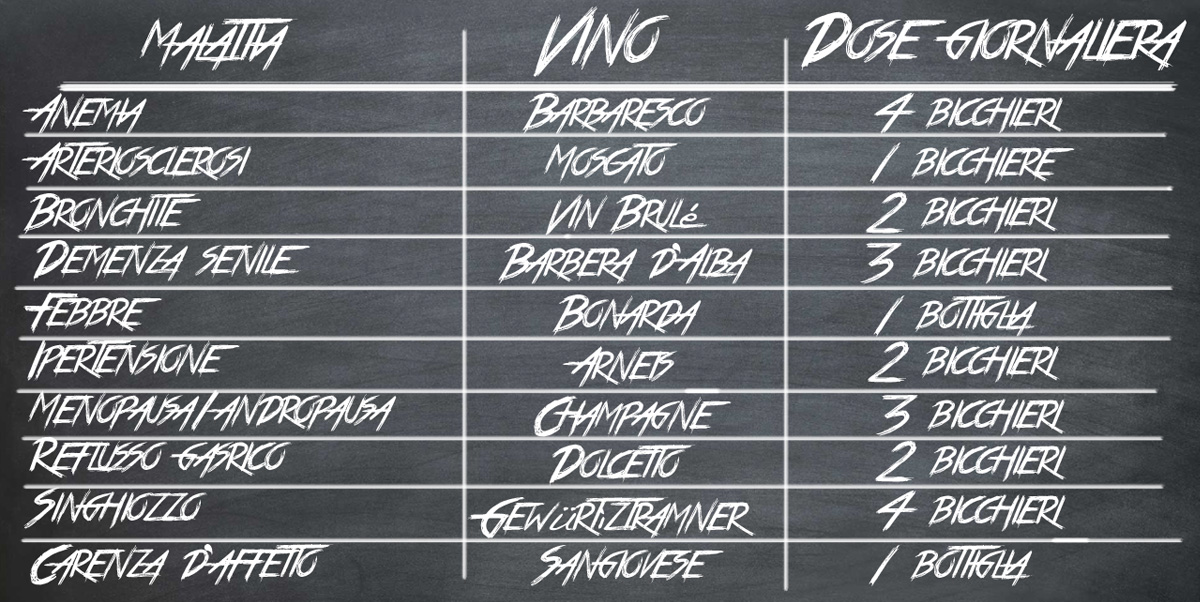 Malattia Vino Dose giornaliera
Anemia Barbaresco 4 bicchieri
Arteriosclerosi Moscato 1 bicchiere
Bronchite Vin Brulé 2 bicchieri
Demenza senile Barbera d'Alba 3 bicchieri
Febbre Bonarda 1 bottiglia
Ipertensione Arneis 2 bicchieri
menopausa/andropausa Champagne 3 bicchieri
Reflusso gasrico Dolcetto 2 bicchieri
Singhiozzo Gewürtiztramner 4 bicchieri
Carenza d'affetto Sangiovese 1 bottiglia